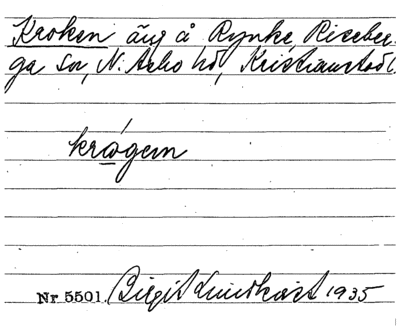 Kroken äng å Rynke, Riseber-
ga sn, N. Åsbo hd, Kristianstads l.
krågem
Nr 5501. Birgit Lundkvist 1935